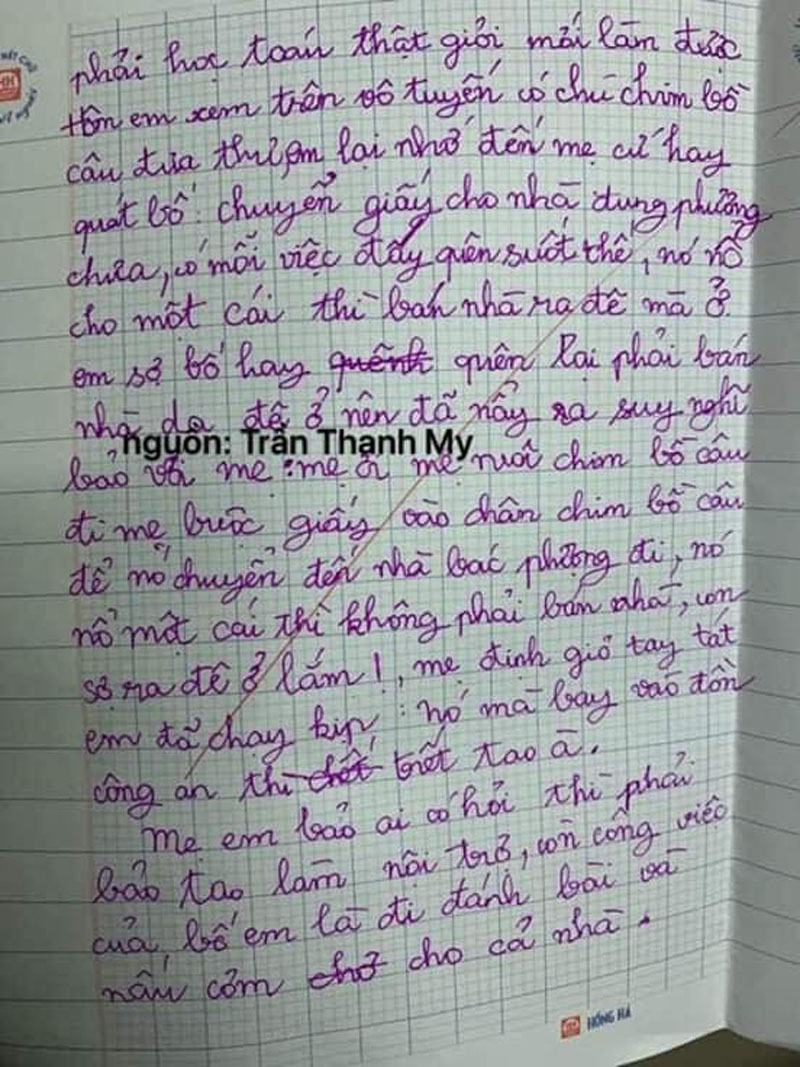 phải học toán thật giỏi mới làm được
Hôm em xem trên vô tuyến có chú chim bồ
câu đưa thư, em lại nhớ đến mẹ cứ hay
quát bố: chuyển giấy cho nhà dung phượng
chưa, có mỗi việc đấy quên suốt thế, nó nổ
cho một cái thì bán nhà ra đê mà ở.
em sợ bố hay quênh quên lại phải bán
nhà da đê ở nên đã nẩy ra suy nghĩ
nguồn: Trần Thạnh My
bảo với mẹ: mẹ ơi mẹ nuôi chim bồ câu
đi mẹ buộc giấy vào chân chim bồ câu
để nó chuyển đến nhà bác phượng đi, nó
nổ một cái thì không phải bán nhà, con
sợ ra đê ở lắm!, mẹ định giơ tay tát
em đã chạy kịp: nó mà bay vào đồn
công an thì chết chết tao à.
Mẹ em bảo ai có hỏi thì phải
bảo tao làm nội trợ, còn công việc
của bố em là đi đánh bài và
nấu cơm chở cho cả nhà.
HỒNG HÀ